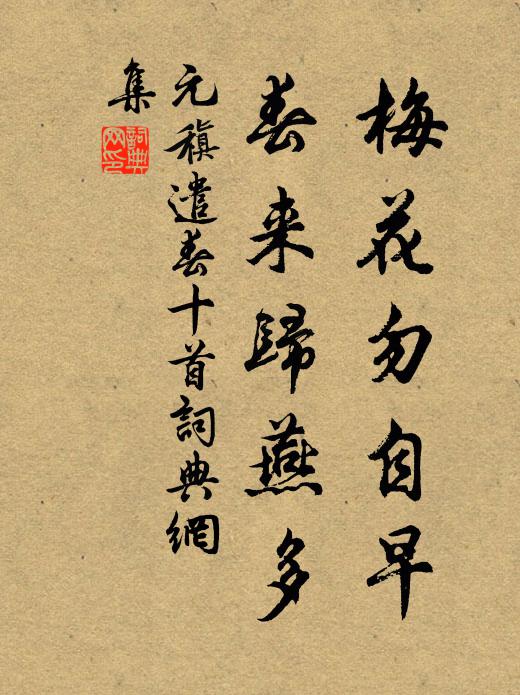 梅花勿自早
春来歸燕多
元稹遣春十首詞典網
集
詞典
网印